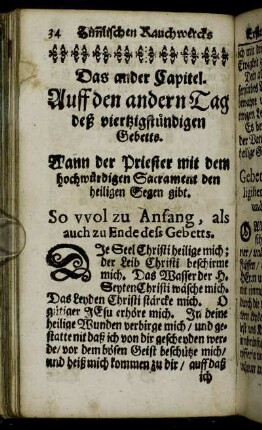 34 Himlischen Rauchwercks
Das ander Capitel.
Auff den andern Tag
deß viertzigstündigen
Gebetts.
Wann der Priester mit dem
hochwürdigen Sacrament den
heiligen Segen gibt.
So vvol zu Anfang, als
auch zu Ende deſs Gebetts.
DIe Seel Christi heilige mich;
der Leib Christi beschirme
mich. Das Wasser der H.
Seyten Christi wasche mich.
Das Leyden Christi stärcke mich. O
gütiger JEsu erhöre mich. In deine
heilige Wunden verbirge mich/ und ge-
statte nit daß ich von dir gescheyden wer-
de/ vor dem bösen Geist beschütze mich/
und heiß mich kommen zu dir/ auff daß
ich